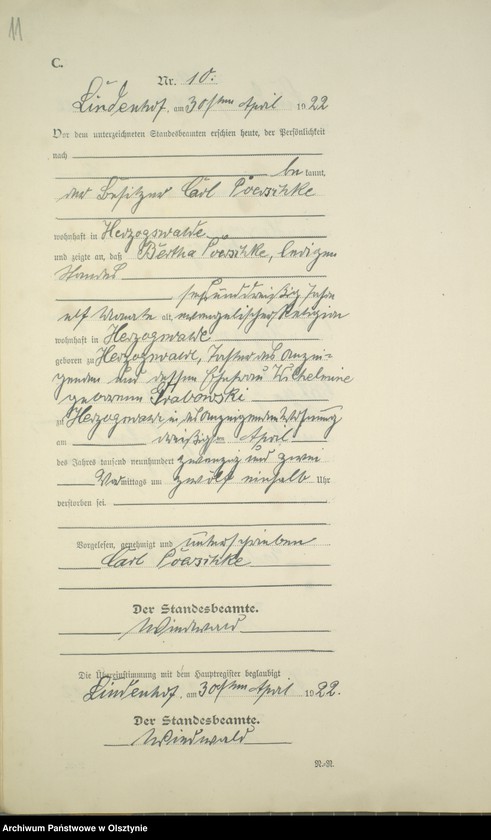 11
C.
Nr. 10.
Lindenhof, am 30ten April 1922
Vor dem unterzeichneten Standesbeamten erschien heute, der Persönlichkeit
nach
be kannt,
der Besitzer Carl Poerschke
wohnhaft in Herzogswalde
und zeigte an, daß Bertha Poerschke, ledigen
Standes
sechsunddreißig Jahre
elf Monate alt, evangelischer Religion
wohnhaft in Herzogswalde
geboren zu Herzogswalde, Tochter des Anzei-
genden und dessen Ehefrau Wilhelmine
geborenen Grabowski
zu Herzogswalde in des Anzeigenden Wohnung
am dreißigsten April
des Jahres tausend neunhundert zwanzig und zwei
Vormittags um zwölf einhalb Uhr
verstorben sei.
Vorgelesen, genehmigt und unterschrieben
Carl Poerschke
Der Standesbeamte.
Windwald
Die Übereinstimmung mit dem Hauptregister beglaubigt
Lindenhof, am 30ten April 1922.
Der Standesbeamte.
Windwald
N.-R.
Archiwum Państwowe w Olsztynie